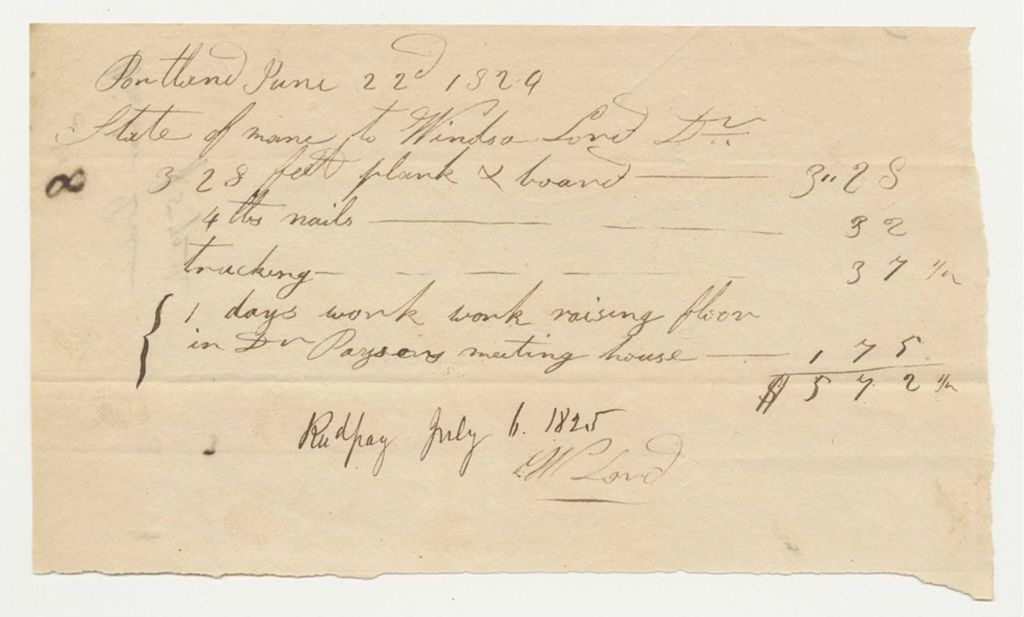 Portland June 22d 1824
State of mane to Windso Lord Dr
328 feet plank & board 3"28
4 lbs nails 32
trucking 37 1/2
1 days work work raising floor
in Dr Paysons meeting house 1 75
$ 5 72 1/2
Recd pay July 6. 1825
W Lord